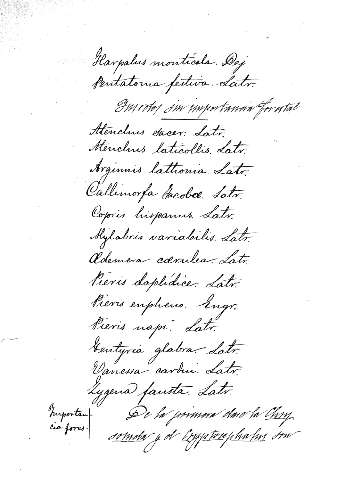 Harpalus monticola. Dej
Pentatoma festiva. Latr.
Insectos sin importancia forestal
Ateuchus sacer. Latr.
Ateuchus laticollis. Latr.
Arginnis lathonia Latr.
Callimorfa Jacobea Latr.
Copris hispanus. Latr.
Mylabris variabilis. Latr.
Œdemera cærulea. Latr.
Pieris daplidice. Latr.
Pieris eupheno. Engr.
Pieris napi. Latr.
Tentyria glabra Latr.
Vanessa cardui Latr.
Zygena fausta. Latr.
Importan-
cia fores.
De la primera clase la Chry
somela y el Cryptocephalus son